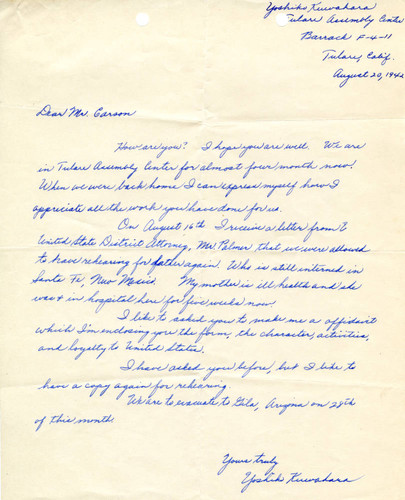 Yoshiko Kuwahara
Tulare Assembly Center
Barrack F-4-11
Tulare, Calif.
August 20, 1942
Dear Mr. Carson
How are you? I hope you are well. We are
in Tulare Assembly Center for almost four month now!
When we were back home I can express myself how I
appreciate all the work you have done for us.
On August 16th I receive a letter from
United State District Attorney, Mr. Palmer that we were allowed
to have rehearing for father again. Who is still interned in
Santa Fe, New Mexico. My mother is ill health and she
was in hospital here for five weeks now.
I like to asked you to make me a affidavit
which I'm enclosing you the form, the character, activities,
and loyalty to United States.
I have asked you before, but I like to
have a copy again for rehearing.
We are to evacuate to Gila, Arizona on 28th
of this month.
Yours truly
Yoshiko Kuwahara